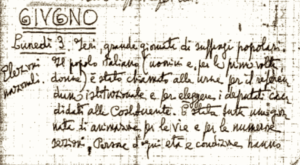 GIUGNO
Lunedì 3. Ieri, grande giornata di suffragi popolari.
Elezioni nazionali.
Il popolo italiano (uomini e, per la prima volta,
donne) è stato chiamato alle urne per il referen
dum istituzionale e per eleggere i deputati can
didati alla Costituente. È stata forte una gior
nata di animazione per le vie e per le numerose
sezioni. Persone d'ogni età e condizione hanno